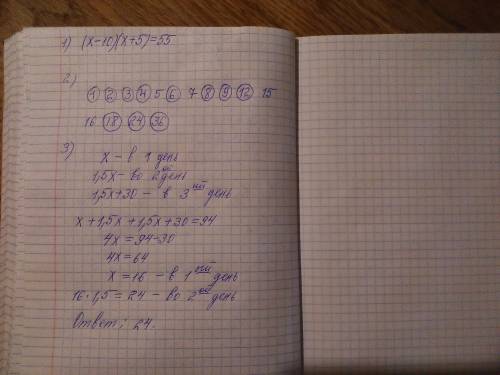 1) (x-10)(x+5)=55
2)
1 2 3 4 5 6 7 8 9 12 15
16 18 24 36
3)
x - в 1 день
1,5x - во 2ой день
1,5x+30 - в 3ий день
x+1,5x+1,5x+30=94
4x=94-30
4x=64
x=16 - в 1ый день
16·1,5=24 - во 2ой день
Ответ: 24.